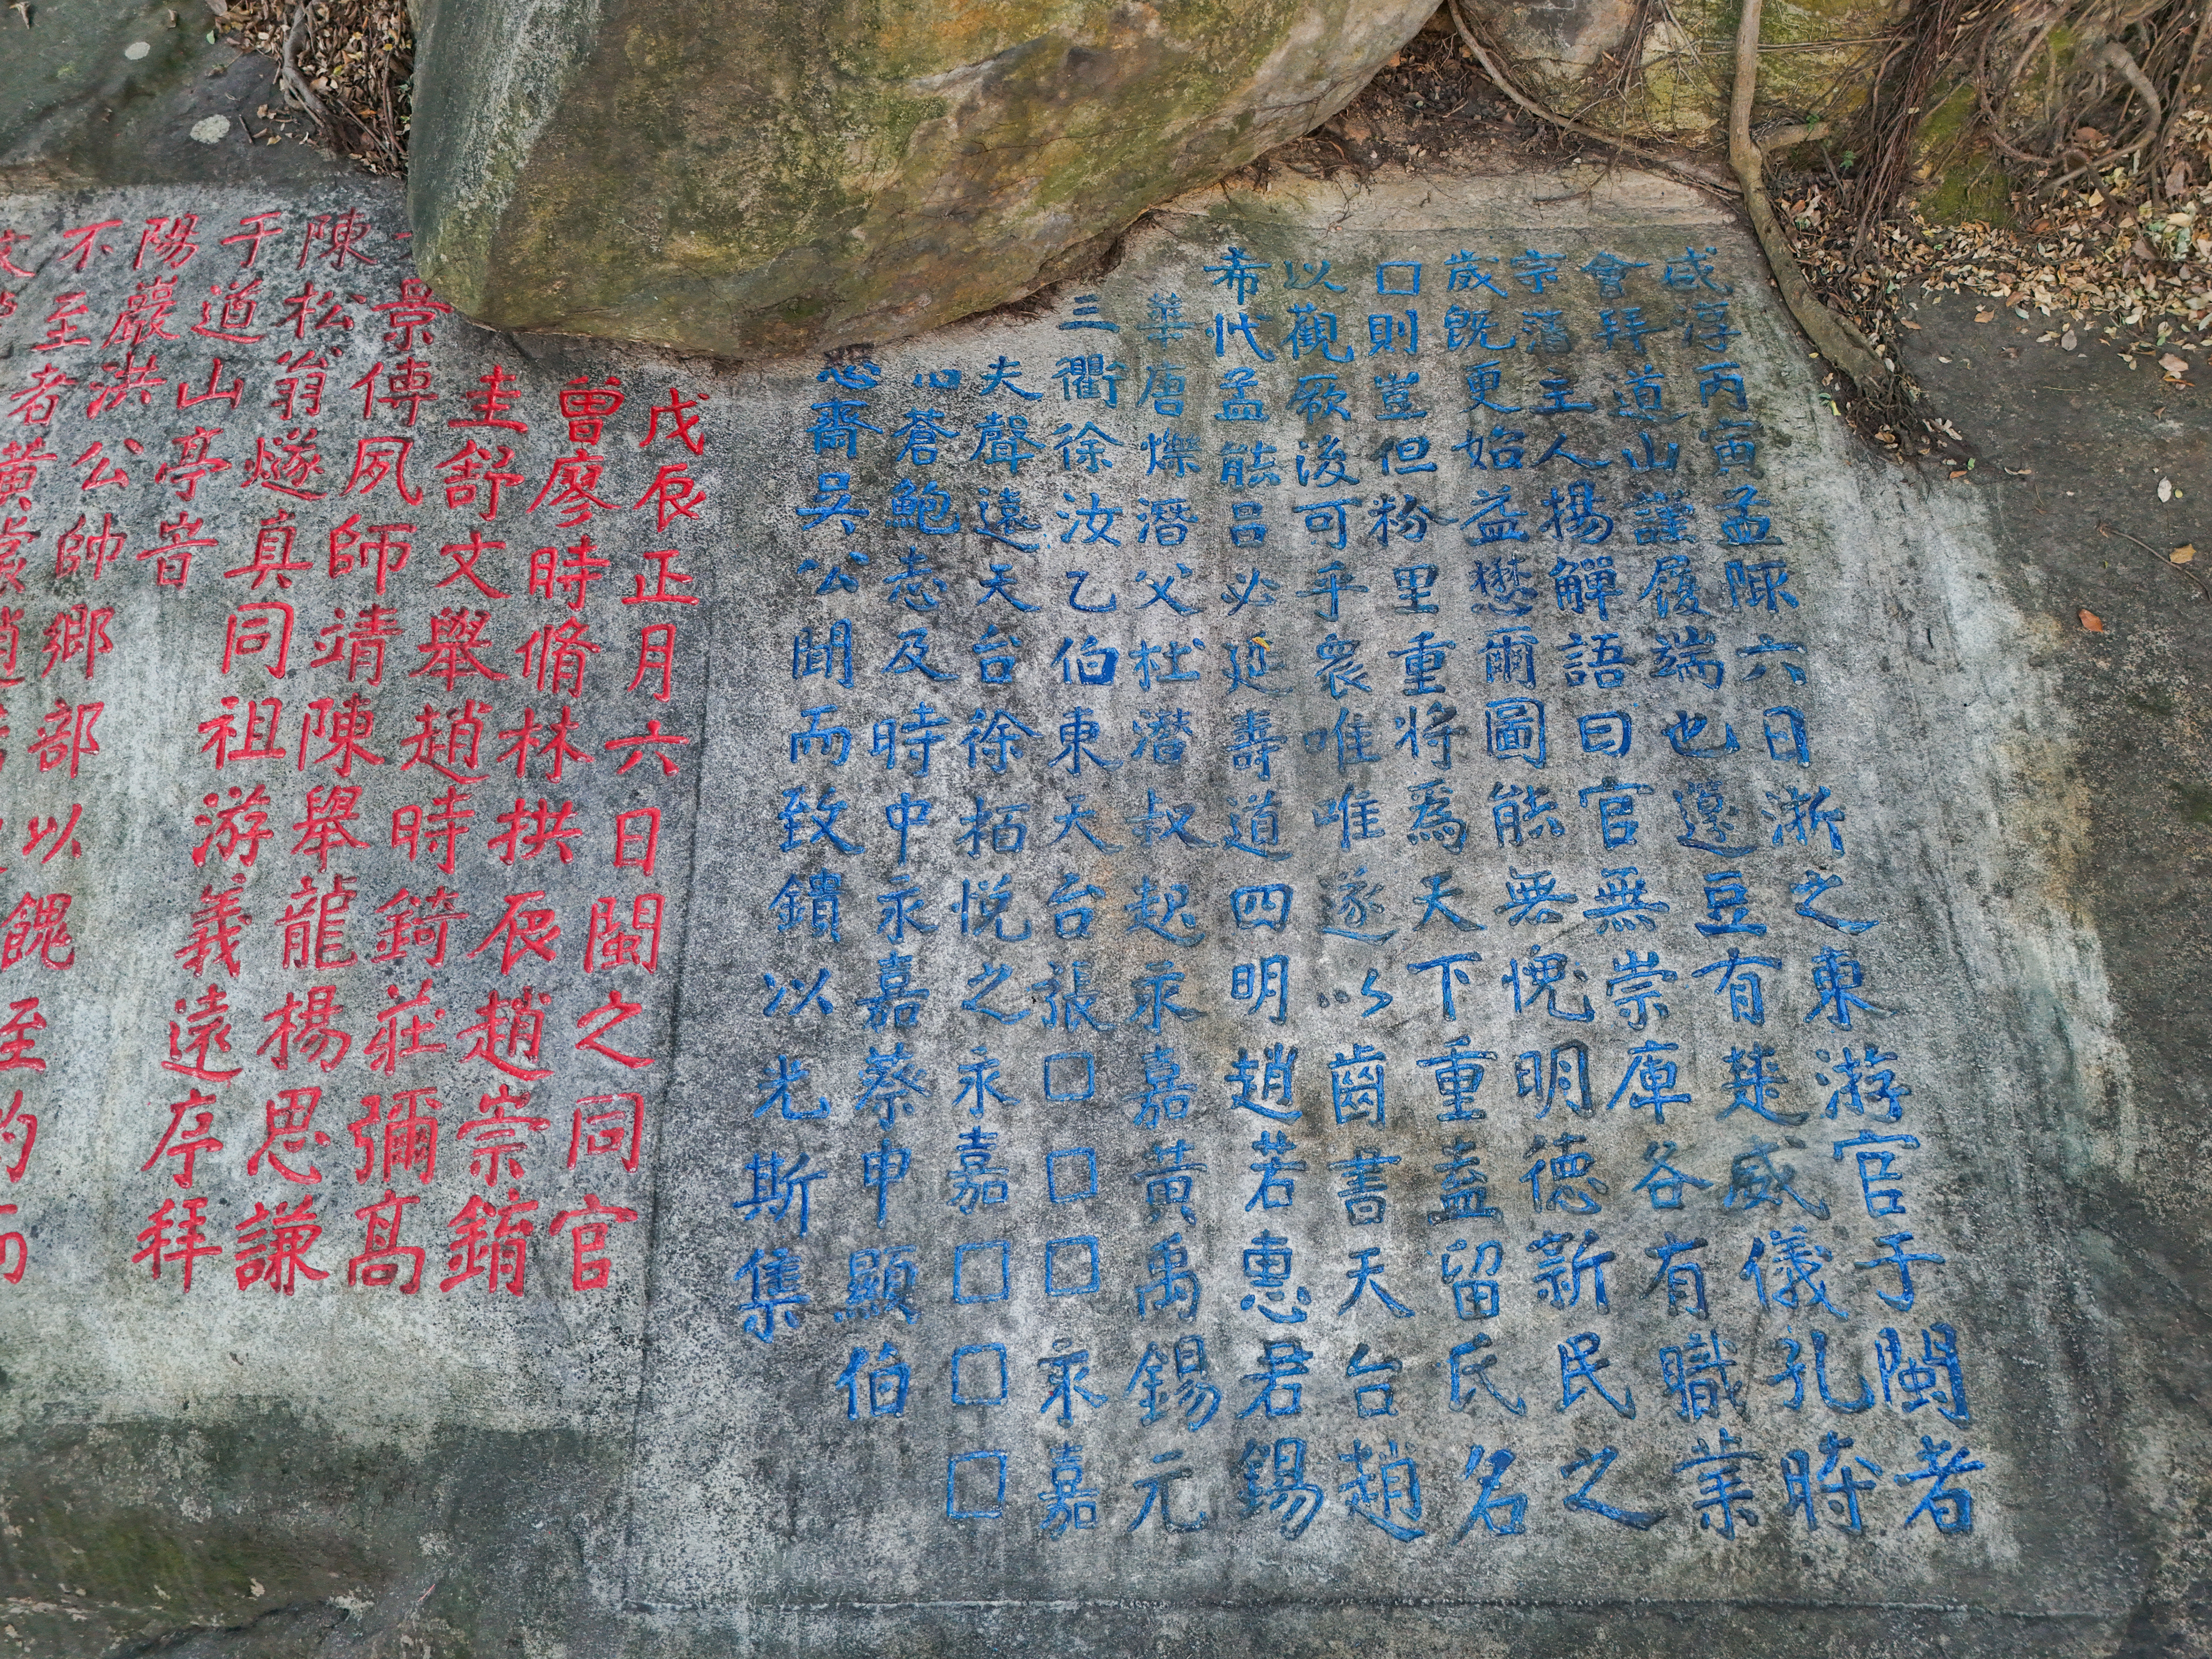 咸淳丙寅孟陬六日浙之東游官于閩者
會拜道山謹履端也籩豆有楚威儀孔時
宗藩主人揚觶語曰官無崇庳各有職業
歲既更始益懋爾圖能無愧明德新民之
□則豈但粉里重將爲天下重盍留氏名
以觀厥後可乎衆唯唯遂以齒書天台趙
希代孟能吕必延壽道四明趙若惠君錫
華唐爍潛父杜潛叔起永嘉黃禹錫元
三衢徐汝乙伯東天台張□□□永嘉
夫聲遠天台徐栢悅之永嘉□□□
蒼鮑志及時中永嘉蔡申顯伯
齋吳公聞而致鎖以光斯集
戊辰正月六日閩之同官
曾廖時脩林拱辰趙崇錥
圭舒文舉趙時錡莊彌高
景傳夙師靖陳舉龍楊思謙
陳松翁燧真同祖游義遠序拜
于道山亭音
陽巖洪公帥鄉部以餽至的而
不至者黃裳趙